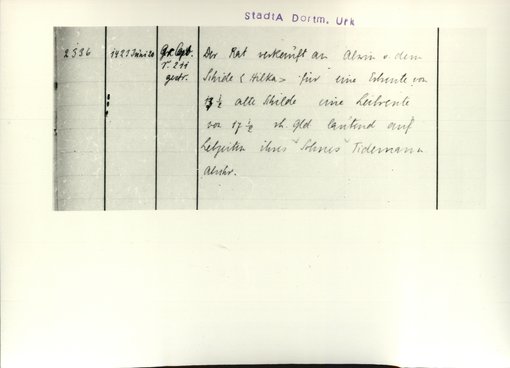 StadtA Dortm. Urk
2596
1423 Juni 20
gestr.
Der Rat verkauft an Alwin v. dem
Schide (Hilka) für eine Erbrente von
13 ½ alte Schilde eine Leibrente
von 17 ½ rh. Gld lautend auf
Lebzeiten ihres Sohnes Tidemann
Abschr.